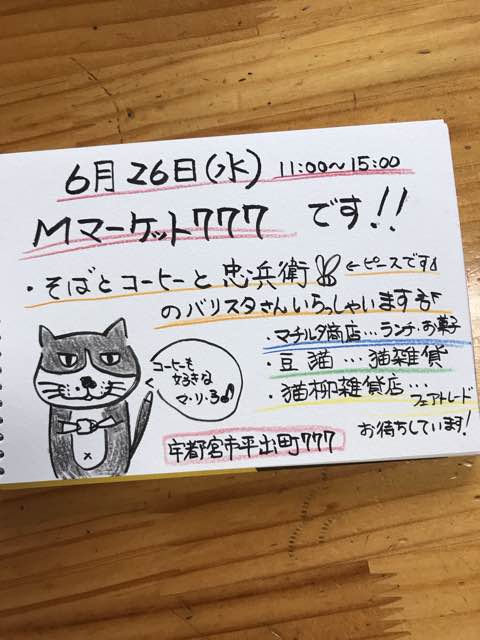 6月26日(水) 11:00~15:00
Mマーケット777 です!!
・そばとコーヒーと忠兵衛 ←ピースです♪
のバリスタさんいらっしゃいます
・マチルダ商店…ランチ・お菓子
・豆猫…猫雑貨
・猫柳雑貨店…
フェアトレード
コーヒーも
好きな
マ・リ・ろ♪
お待ちしています!
宇都宮市平出町777